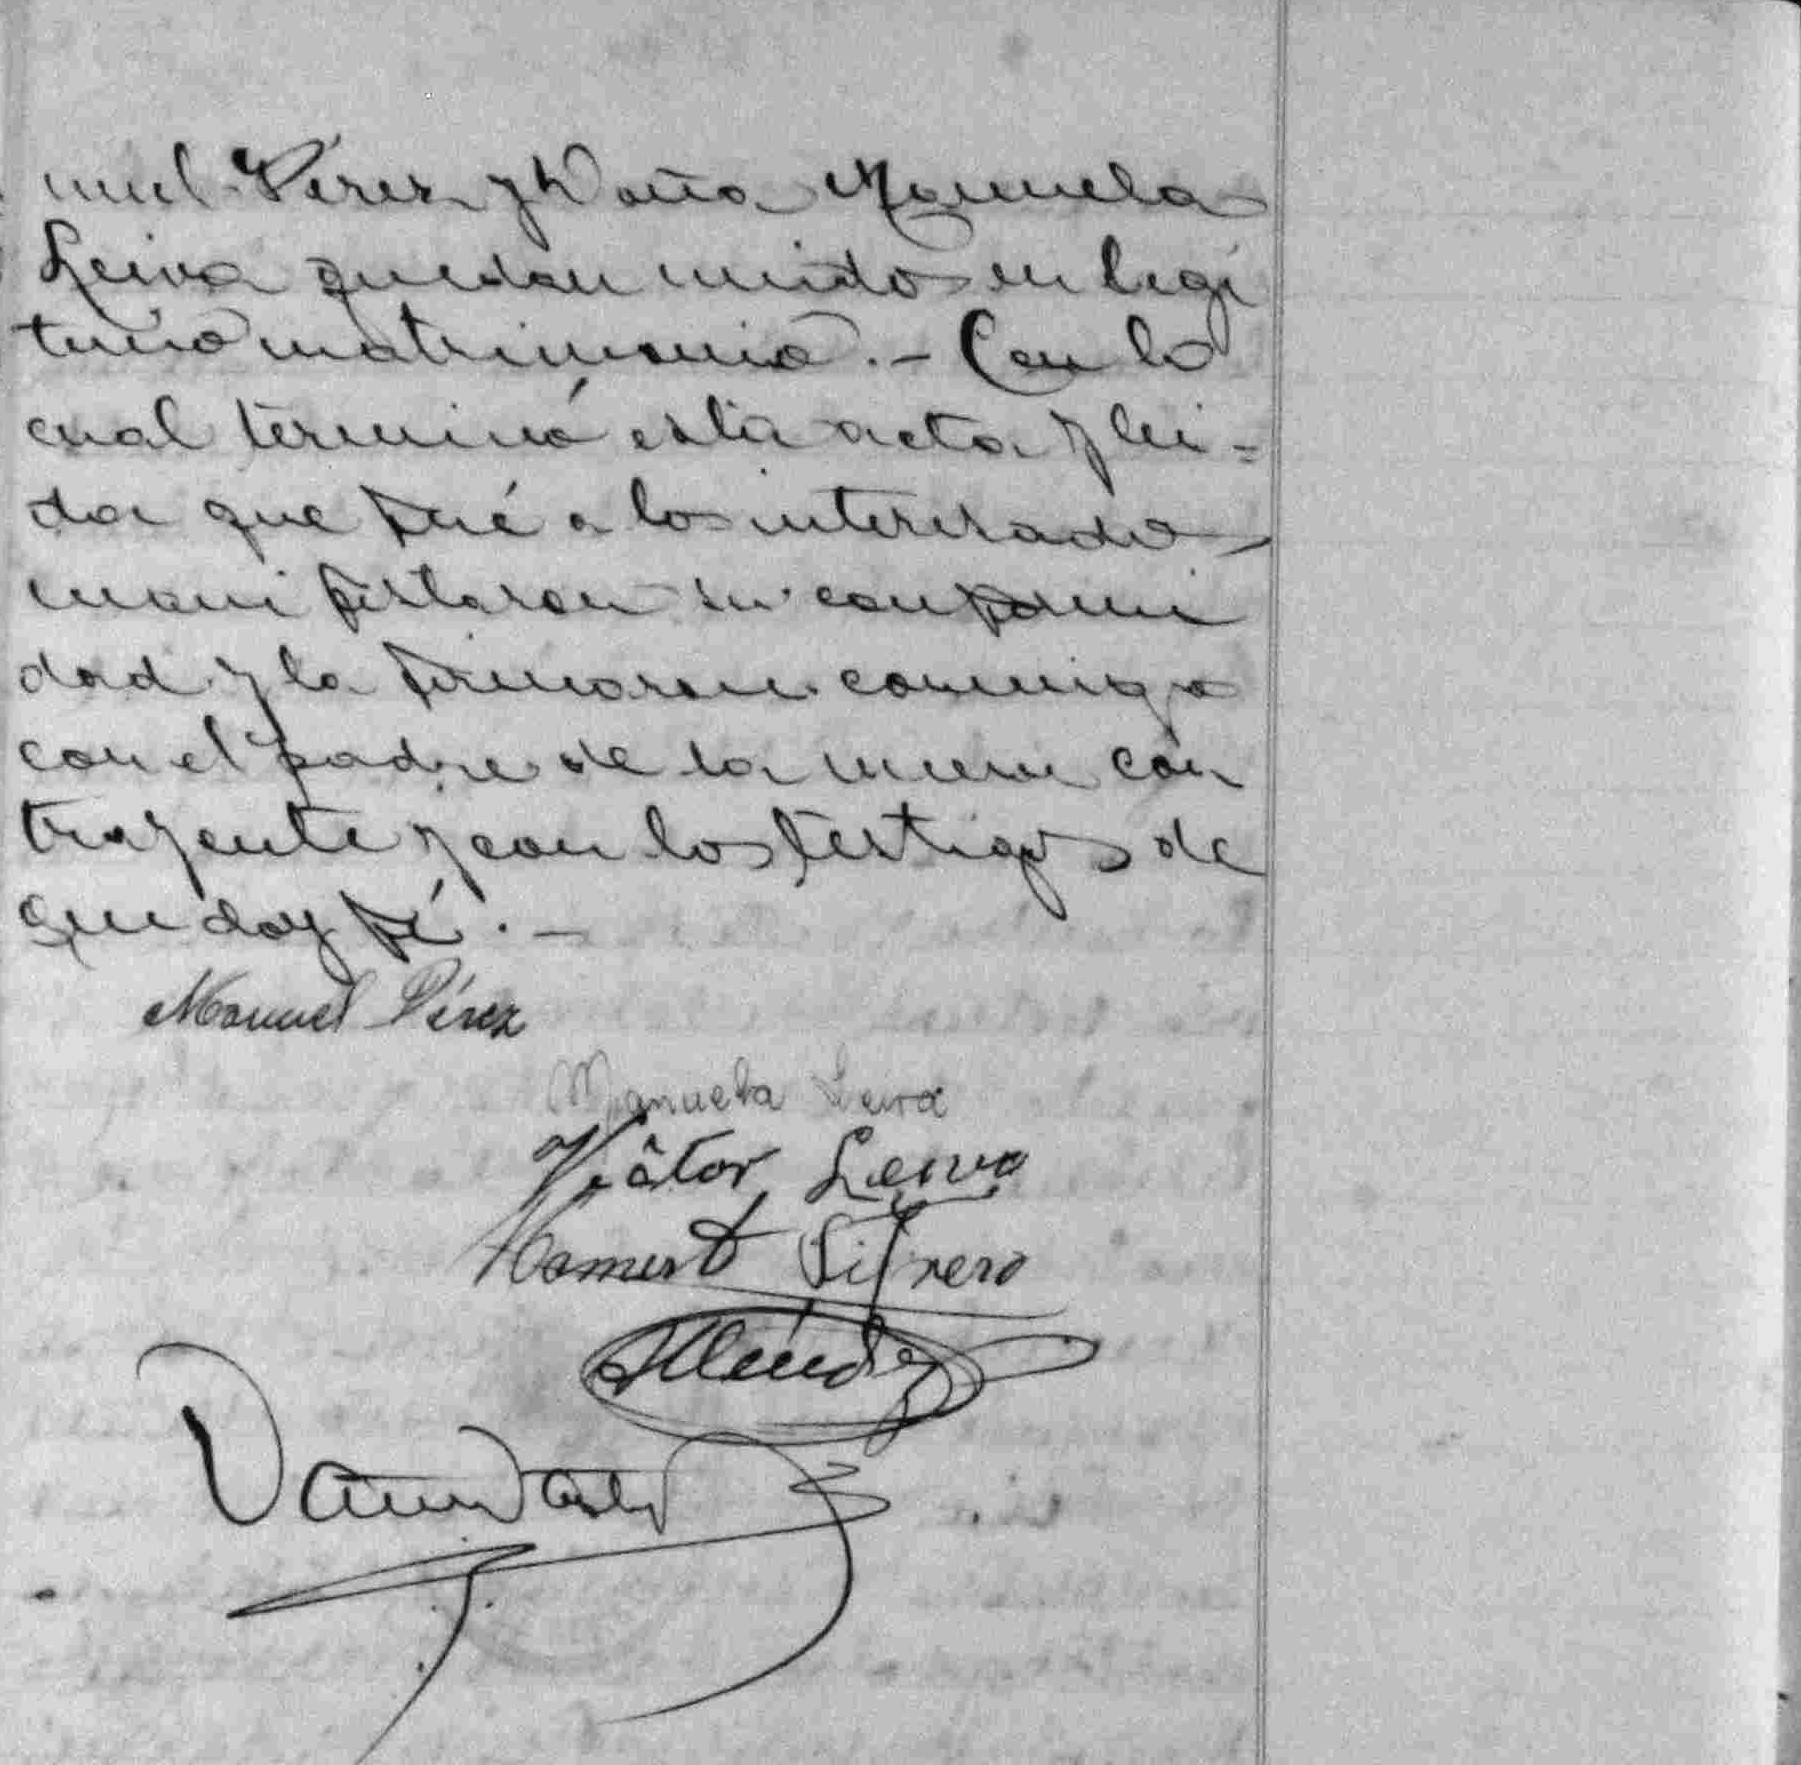 nuel Pérez y Doña Manuela
Leiva quedan unidos en legí
timo matrimonio.- Con lo
cual terminó esta acta y lei=
da que fué a los interesados
manifestaron su conformi
dad y la firmaron conmigo
con el padre de la menor con
trayente y con los testigos de
que doy fé.-
Manuel Pérez
Manuela Leiva
Victor Leiva